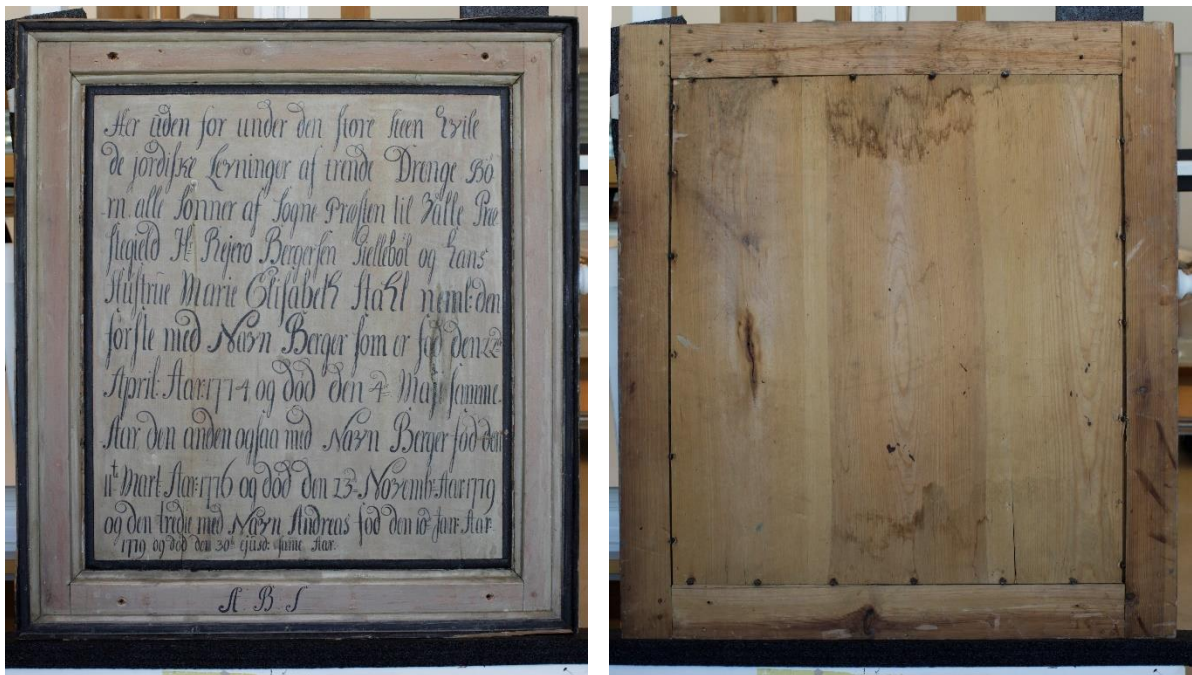 Her uden for under den store steen hvile
de jordiske Levninger af trende Drenge Bö
rn alle Sönner af Sogne Præsten til Hålle Præ
stegield Hr Rejero Bergersen Gielleböl og hans
Hustrue Marie Elisabeth Stahl neml: den
förste med Navn Berger som er föd den 22de
April: Aar: 1774 og död den 4de Maji samme
Aar den anden ogsaa med Navn Berger föd den
11t Mart: Aar: 1776 og död den 23: Novemb: Aar: 1779
og den tredie med Navn Andreas föd den 10de Jan: Aar
1779 og död den 30te ejusd: samme Aar.
A B S